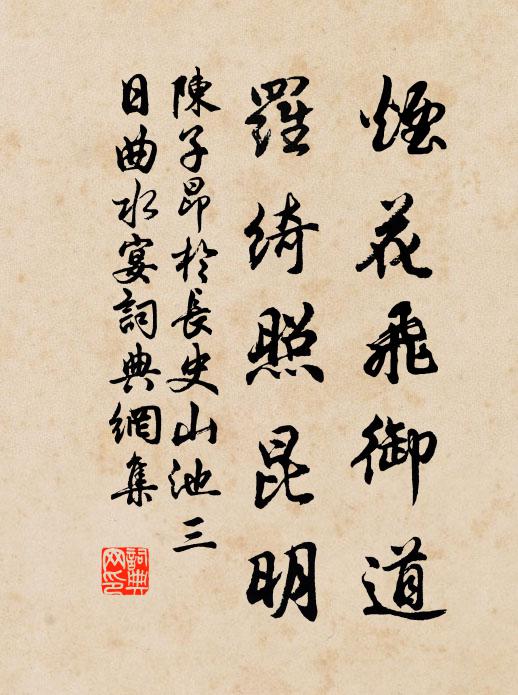 煙花飛御道
羅綺照昆明
陳子昂於長史山池三
日曲水宴詞典網集
詞典
网印